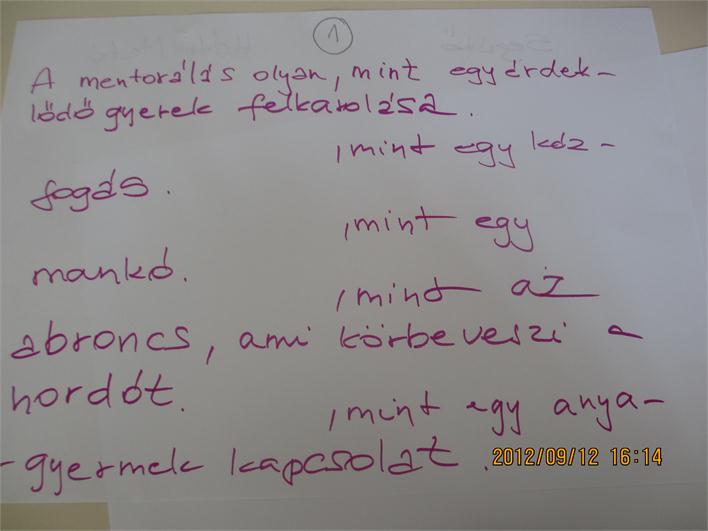 1
A mentorálás olyan, mint egy érdek-
lődő gyerek felkarolása.
, mint egy kéz-
fogás.
, mint egy
mankó.
, mint az
abroncs, ami körbeveszi a
hordót.
, mint egy anya-
-gyermek kapcsolat.
2012/09/12 16:14